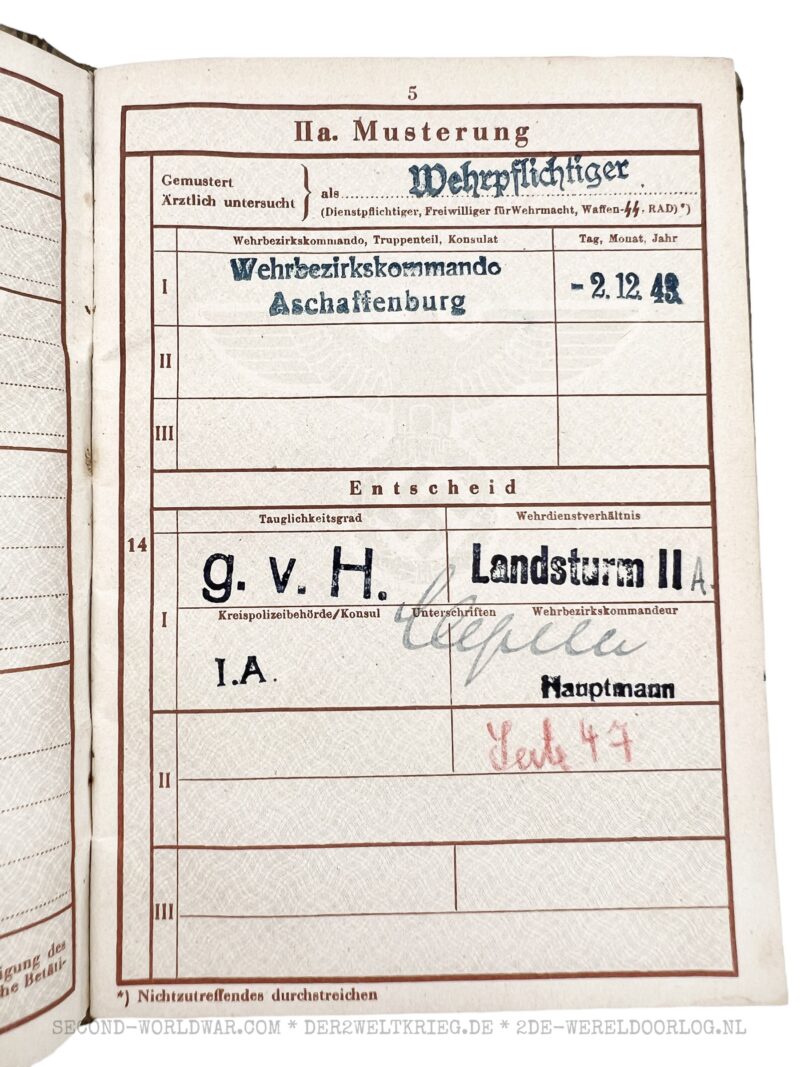 5
IIa. Musterung
Gemustert
Ärztlich untersucht
als Wehrpflichtiger
(Dienstpflichtiger, Freiwilliger für Wehrmacht, Waffen-ᛋᛋ. RAD)*)
Wehrbezirkskommando, Truppenteil, Konsulat Tag, Monat, Jahr
I Wehrbezirkskommando
Aschaffenburg - 2. 12. 43.
II
III
Entscheid
Tauglichkeitsgrad Wehrdienstverhältnis
14
g. v. H. Landsturm II A.
I Kreispolizeibehörde/Konsul Unterschriften Wehrbezirkskommandeur
I.A. Hauptmann
Seite 47
II
III
*) Nichtzutreffendes durchstreichen
igung des
he Betäti-
SECOND-WORLDWAR.COM * DER2WELTKRIEG.DE * 2DE-WERELDOORLOG.NL